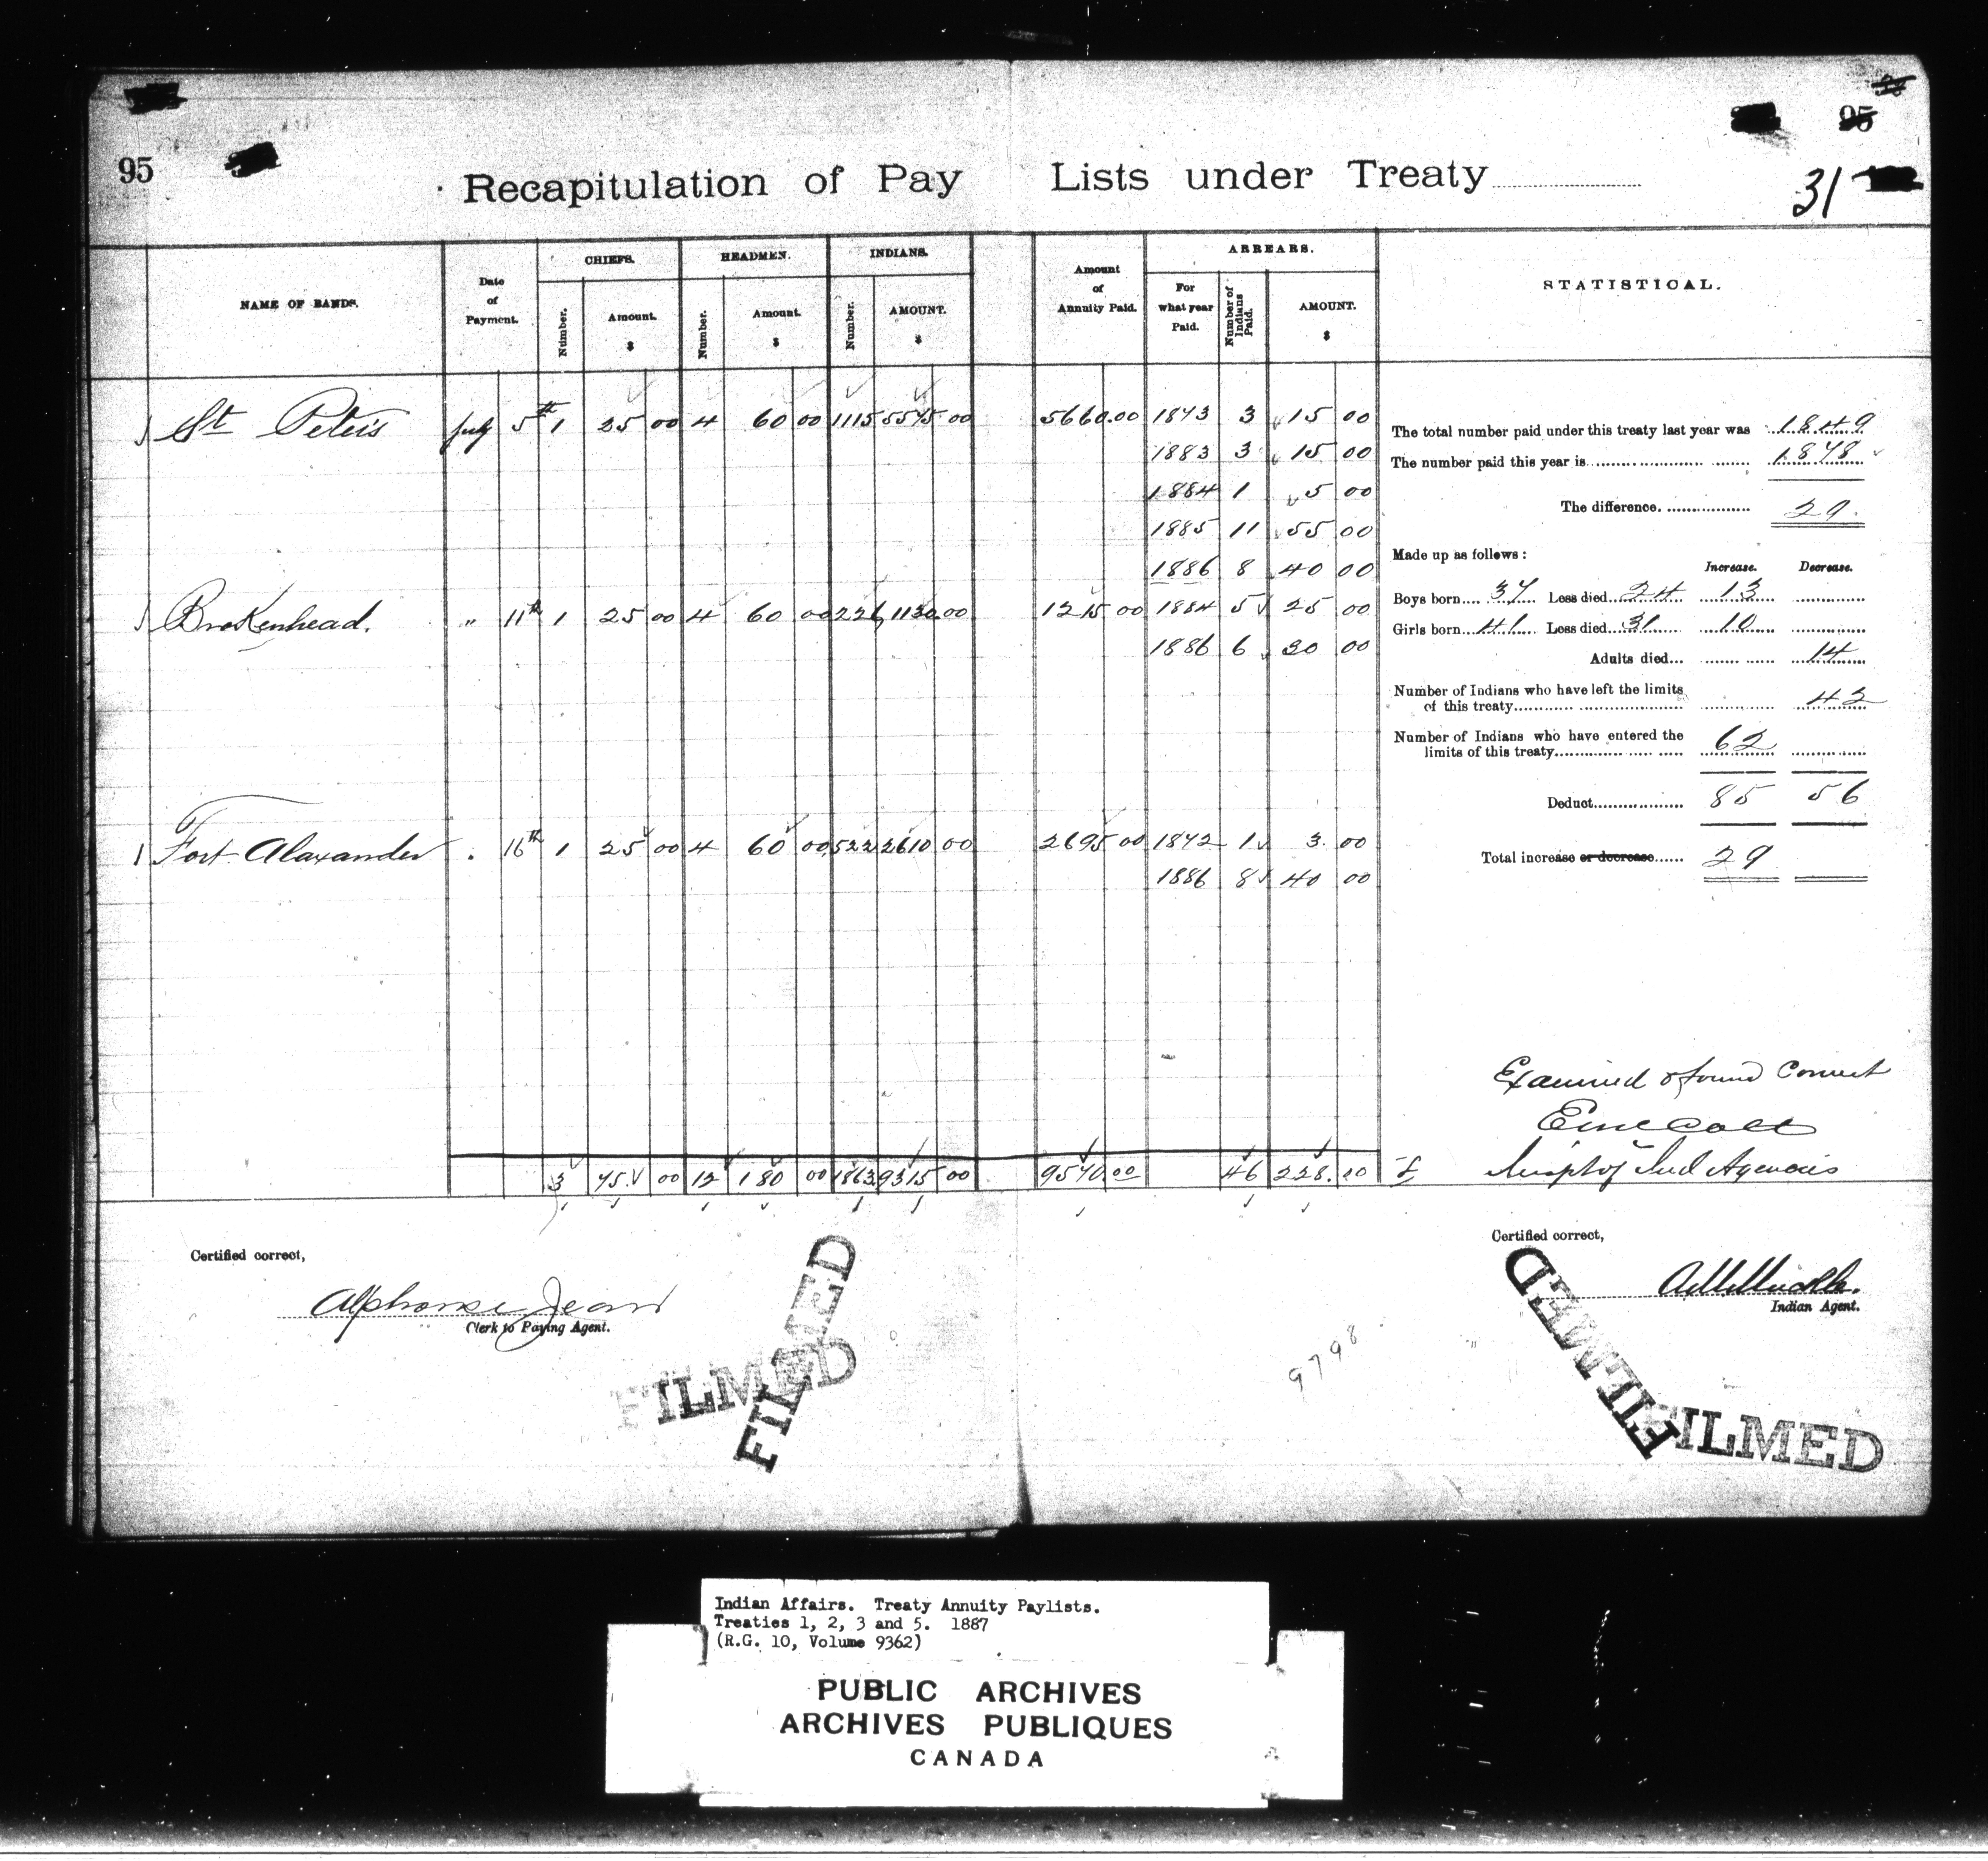 95
95
31
Recapitulation of Pay Lists under Treaty
NAME OF BANDS. Date of Payment. CHIEFS. HEADMEN. INDIANS. Amount of Annuity Paid. ARREARS. STATISTICAL.
Number. Amount. $ Number. Amount. $ Number. AMOUNT. $ For what year Paid. Number of Indians Paid. AMOUNT. $
St Peter's July 5th 1 25 00 4 60 00 1115 5575.00 5660.00 1873 3 15 00
1883 3 15 00
1884 1 5 00
1885 11 55 00
1886 8 40 00
Brokenhead. " 11th 1 25 00 4 60 00 226 1130.00 1215 00 1884 5 25 00
1886 6 30 00
Fort Alaxander . 16th 1 25 00 4 60 00 522 2610 00 2695 00 1872 1 3.00
1886 8 40 00
3 75. 00 12 180 00 1863 9315 00 9570.00 46 228.00
The total number paid under this treaty last year was 1849
The number paid this year is 1878
The difference. 29.
Made up as follows: Increase. Decrease.
Boys born 37 Less died 24 13
Girls born 41 Less died 31 10
Adults died 14
Number of Indians who have left the limits
of this treaty 42
Number of Indians who have entered the
limits of this treaty 62
Deduct 85 56
Total increase or decrease 29
Examined & found Correct
Inspt of Ind Agencies
Certified correct,
Alphonse Jean
Clerk to Paying Agent.
Certified correct,
Indian Agent.
FILMED
FILMED
9798
FILMED
FILMED
Indian Affairs. Treaty Annuity Paylists.
Treaties 1, 2, 3 and 5. 1887
(R.G. 10, Volume 9362)
PUBLIC ARCHIVES
ARCHIVES PUBLIQUES
CANADA